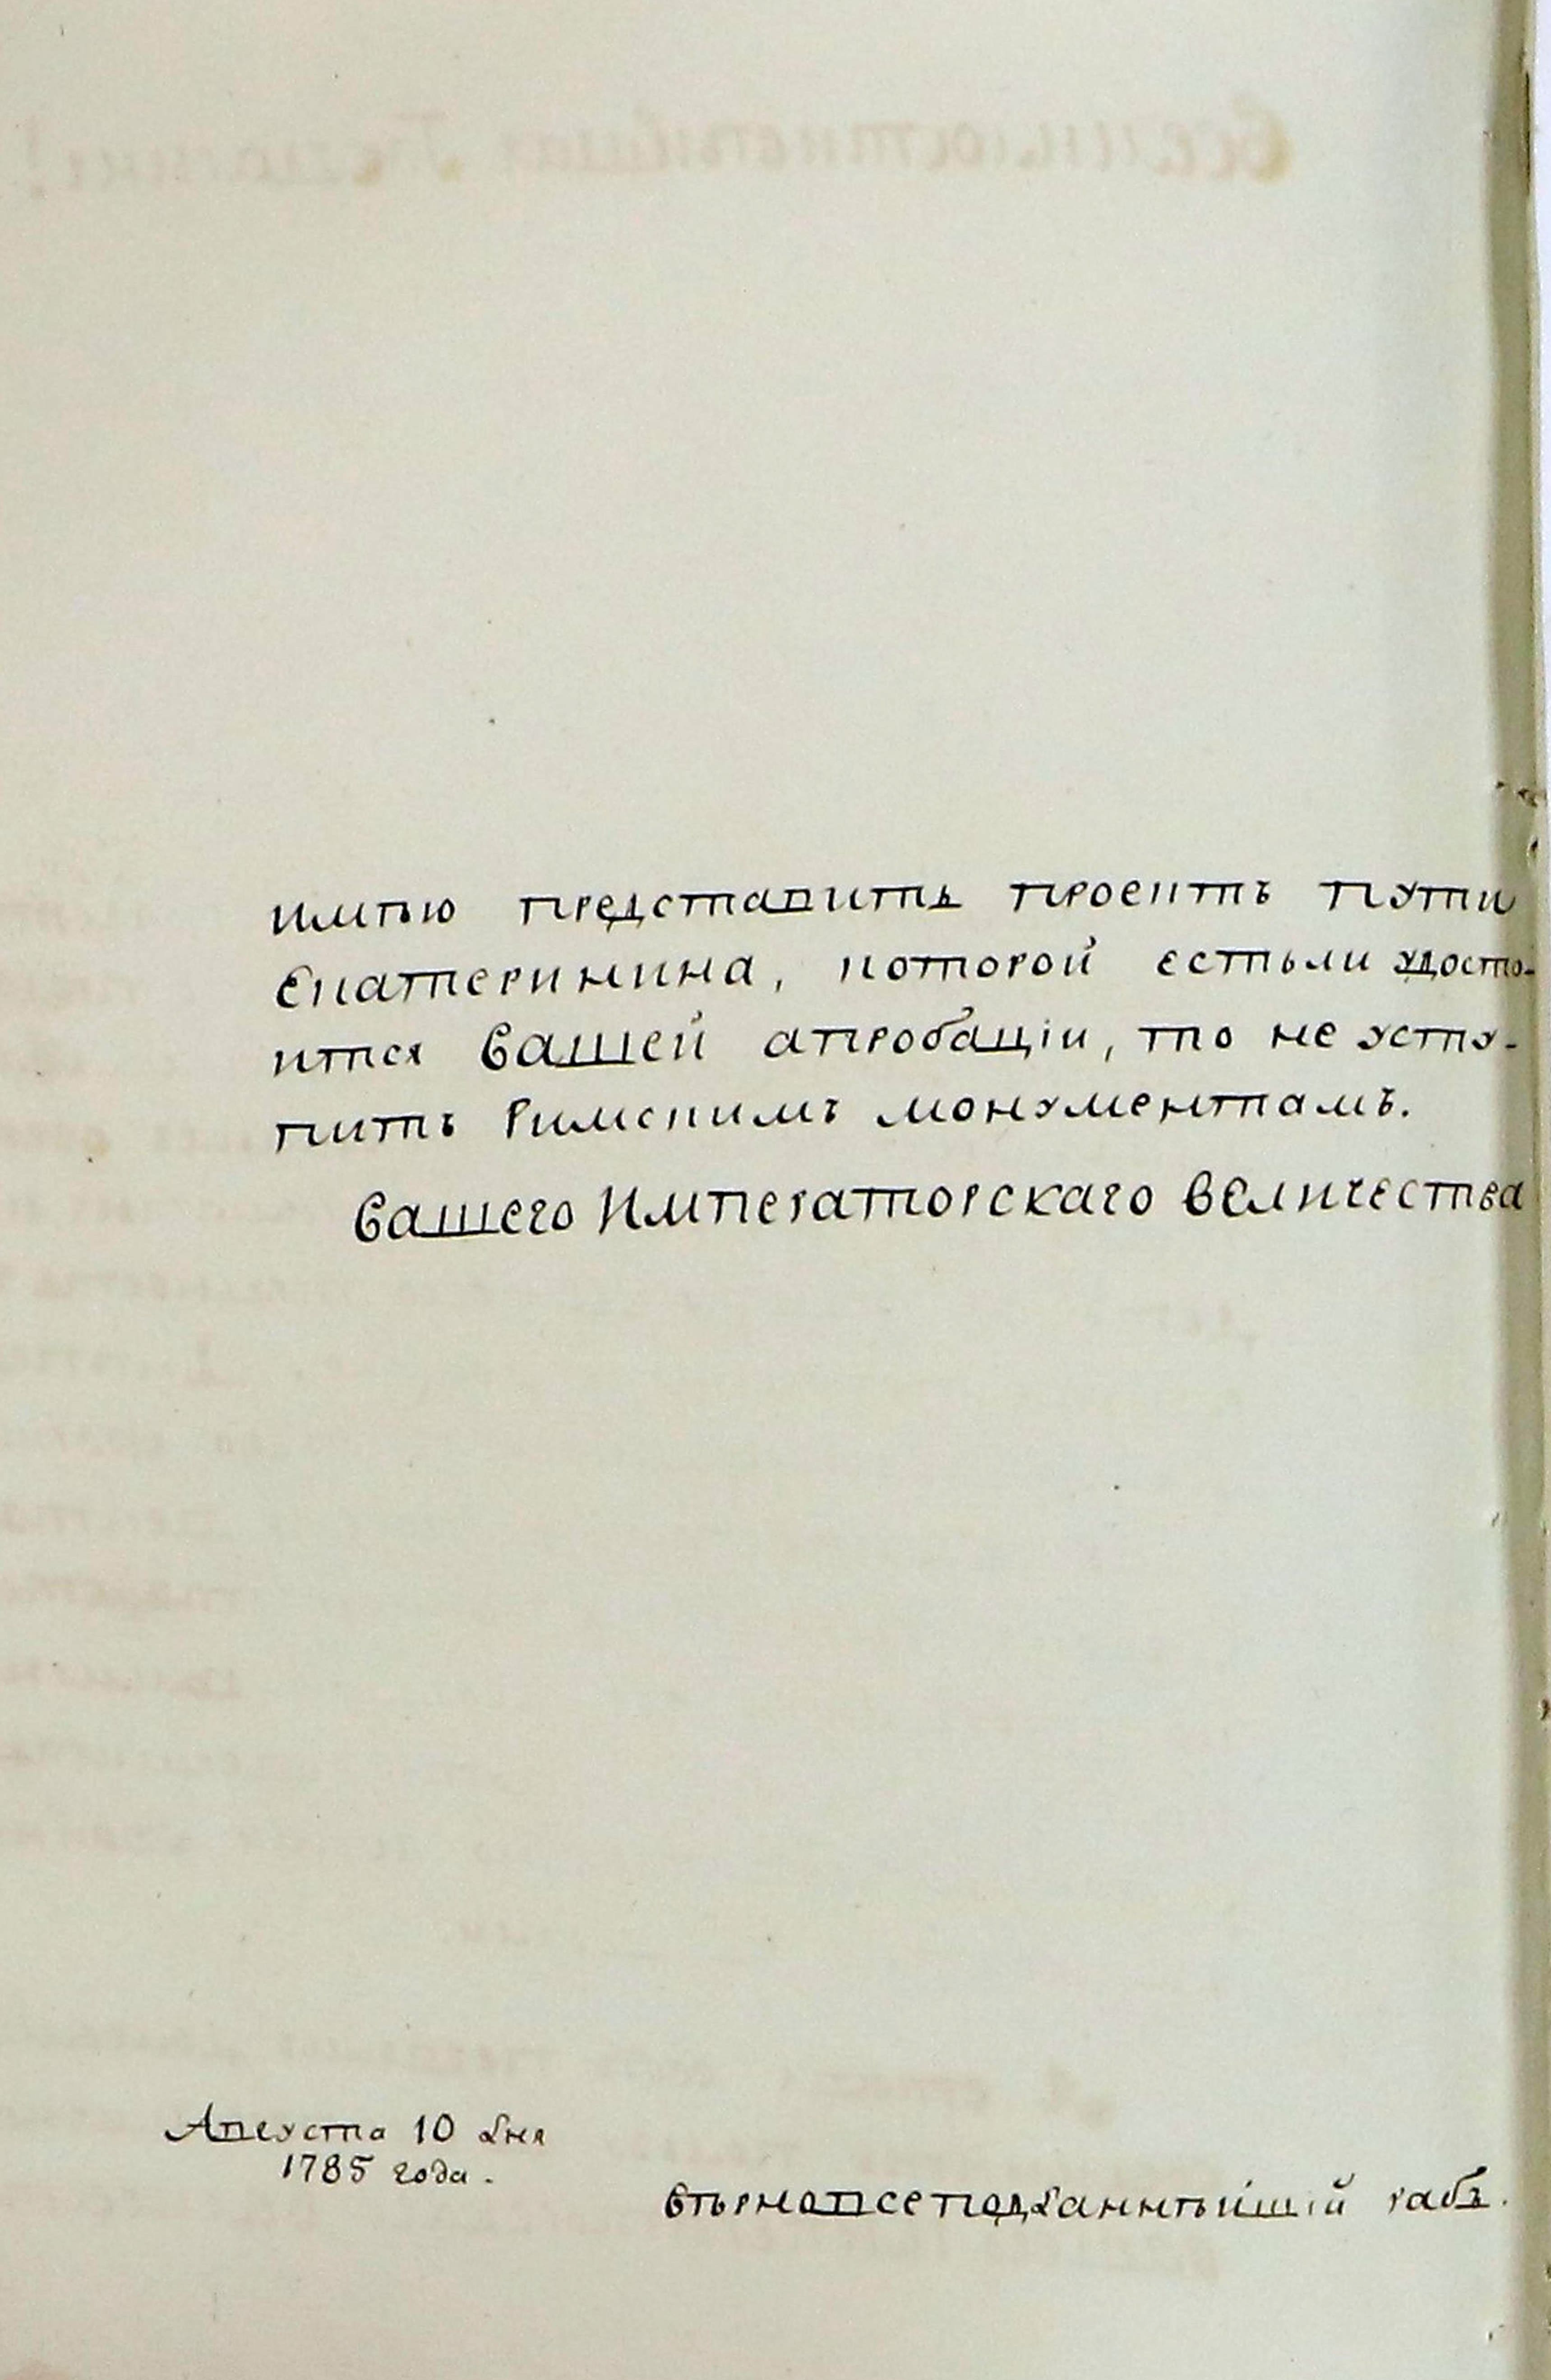 имѣю представить проектъ пути
Екатеринина, которой естьли удосто-
ится Вашей апробаціи, то не усту-
питъ Римскимъ монументамъ.
Вашего Императорскаго Величества
Августа 10 дня
1785 года.
вѣрноподданнѣйшій рабъ.